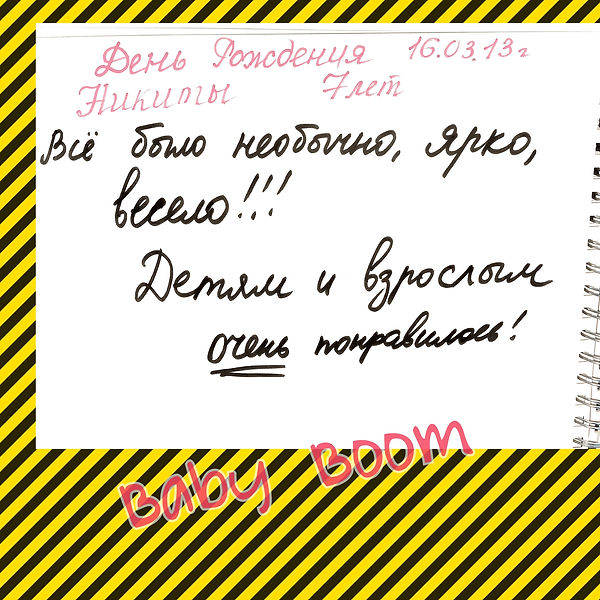 День Рождения 16.03.13г
Никиты 7лет
Всё было необычно, ярко,
весело!!!
Детям и взрослым
очень понравилось!
Baby Boom